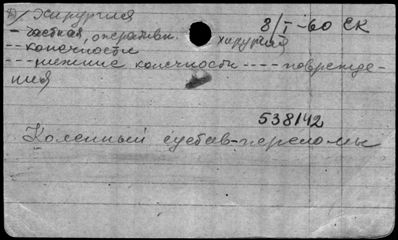 8/I-60 СК
5) Хирургия
- частная, оперативн. хирургия
-- конечности
--- нижние конечности ---- поврежде-
ния
538142
Коленный сустав-переломы